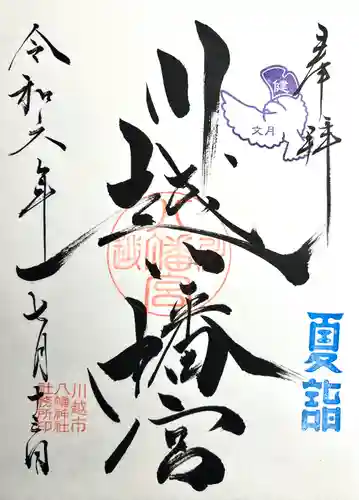 奉拝
健
文月
夏詣
川越八幡宮
令和六年
七月十三日
川越市
八幡神社
社務所印